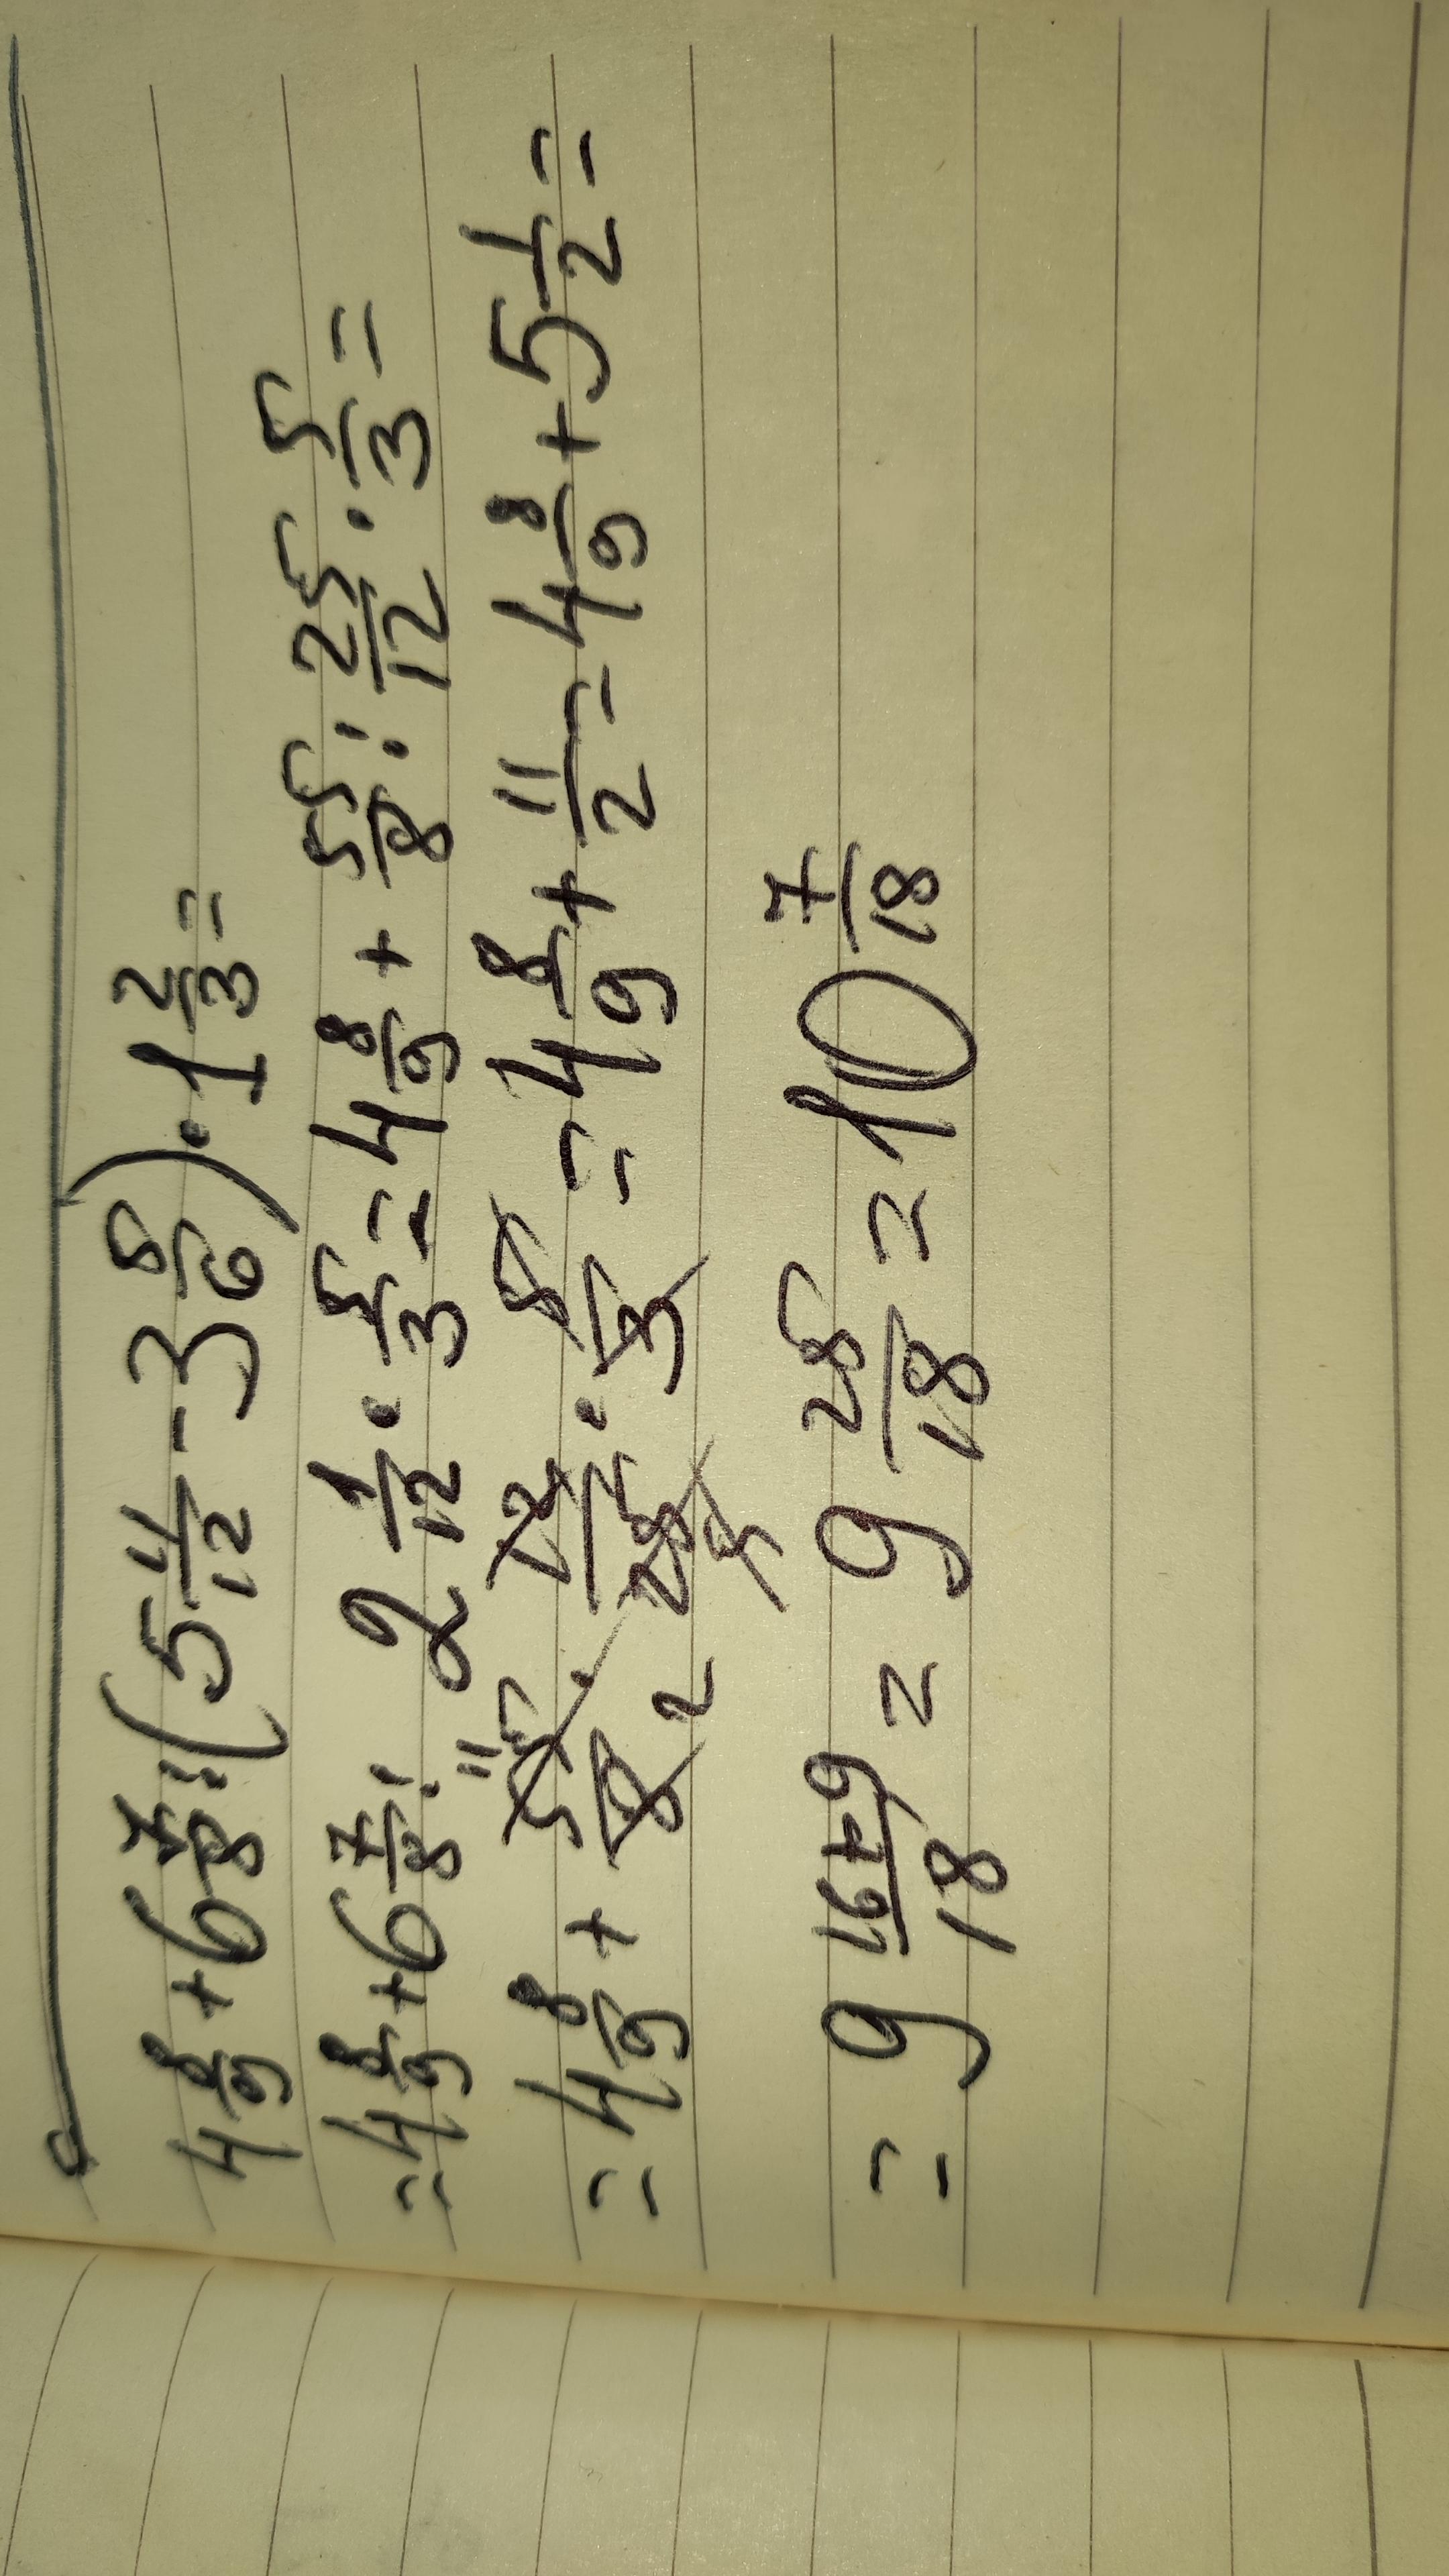 4 8/9 + 6 7/8 : (5 11/12 - 3 5/6) · 1 2/3 =
= 4 8/9 + 6 7/8 : 2 1/12 · 5/3 = 4 8/9 + 55/8 : 25/12 · 5/3 =
= 4 8/9 + 55/8 · 12/25 · 5/3 = 4 8/9 + 11/2 = 4 8/9 + 5 1/2 =
= 9 (16+9)/18 = 9 25/18 = 10 7/18